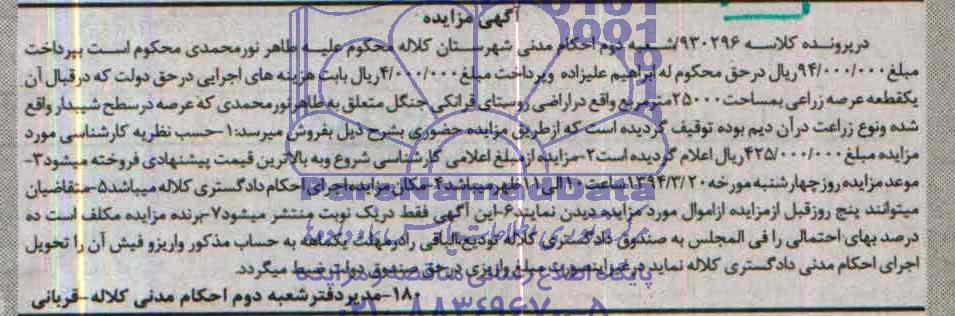 آگهی مزایده
درپرونده کلاسه ۹۳۰۲۹۶/شعبه دوم احکام مدنی شهرستان کلاله محکوم علیه طاهر نورمحمدی محکوم است بپرداخت
مبلغ۹۴/۰۰۰/۰۰۰ریال درحق محکوم له ابراهیم علیزاده وپرداخت مبلغ۴/۰۰۰/۰۰۰ریال بابت هزینه های اجرایی درحق دولت که درقبال آن
یکقطعه عرصه زراعی بمساحت ۲۵۰۰۰مترمربع واقع دراراضی روستای قرانکی جنگل متعلق به طاهرنورمحمدی که عرصه درسطح شیبدار واقع
شده ونوع زراعت درآن دیم بوده توقیف گردیده است که ازطریق مزایده حضوری بشرح ذیل بفروش میرسد:۱-حسب نظریه کارشناسی مورد
مزایده مبلغ ۴۲۵/۰۰۰/۰۰۰ریال اعلام گردیده است۲-مزایده ازمبلغ اعلامی کارشناسی شروع وبه بالاترین قیمت پیشنهادی فروخته میشود۳-
موعدمزایده روزچهارشنبه مورخه ۱۳۹۴/۳/۲۰ساعت ۱۰الی۱۱ظهرمیباشد۴-مکان مزایده اجرای احکام دادگستری کلاله میباشد۵-متقاضیان
میتوانند پنج روزقبل ازمزایده ازاموال مورد مزایده دیدن نمایند۶-این آگهی فقط دریک نوبت منتشر میشود۷-برنده مزایده مکلف است ده
درصد بهای احتمالی را فی المجلس به صندوق دادگستری کلاله تودیع الباقی رادرمهلت یکماهه به حساب مذکور واریزو فیش آن را تحویل
اجرای احکام مدنی دادگستری کلاله نماید درغیراینصورت مبلغ واریزی درحق صندوق دولت ضبط میگردد.
۱۸۰-مدیردفترشعبه دوم احکام مدنی کلاله-قربانی
ParsNamadData
۰۲۱-۸۸۳۴۹۶۷۰-۵